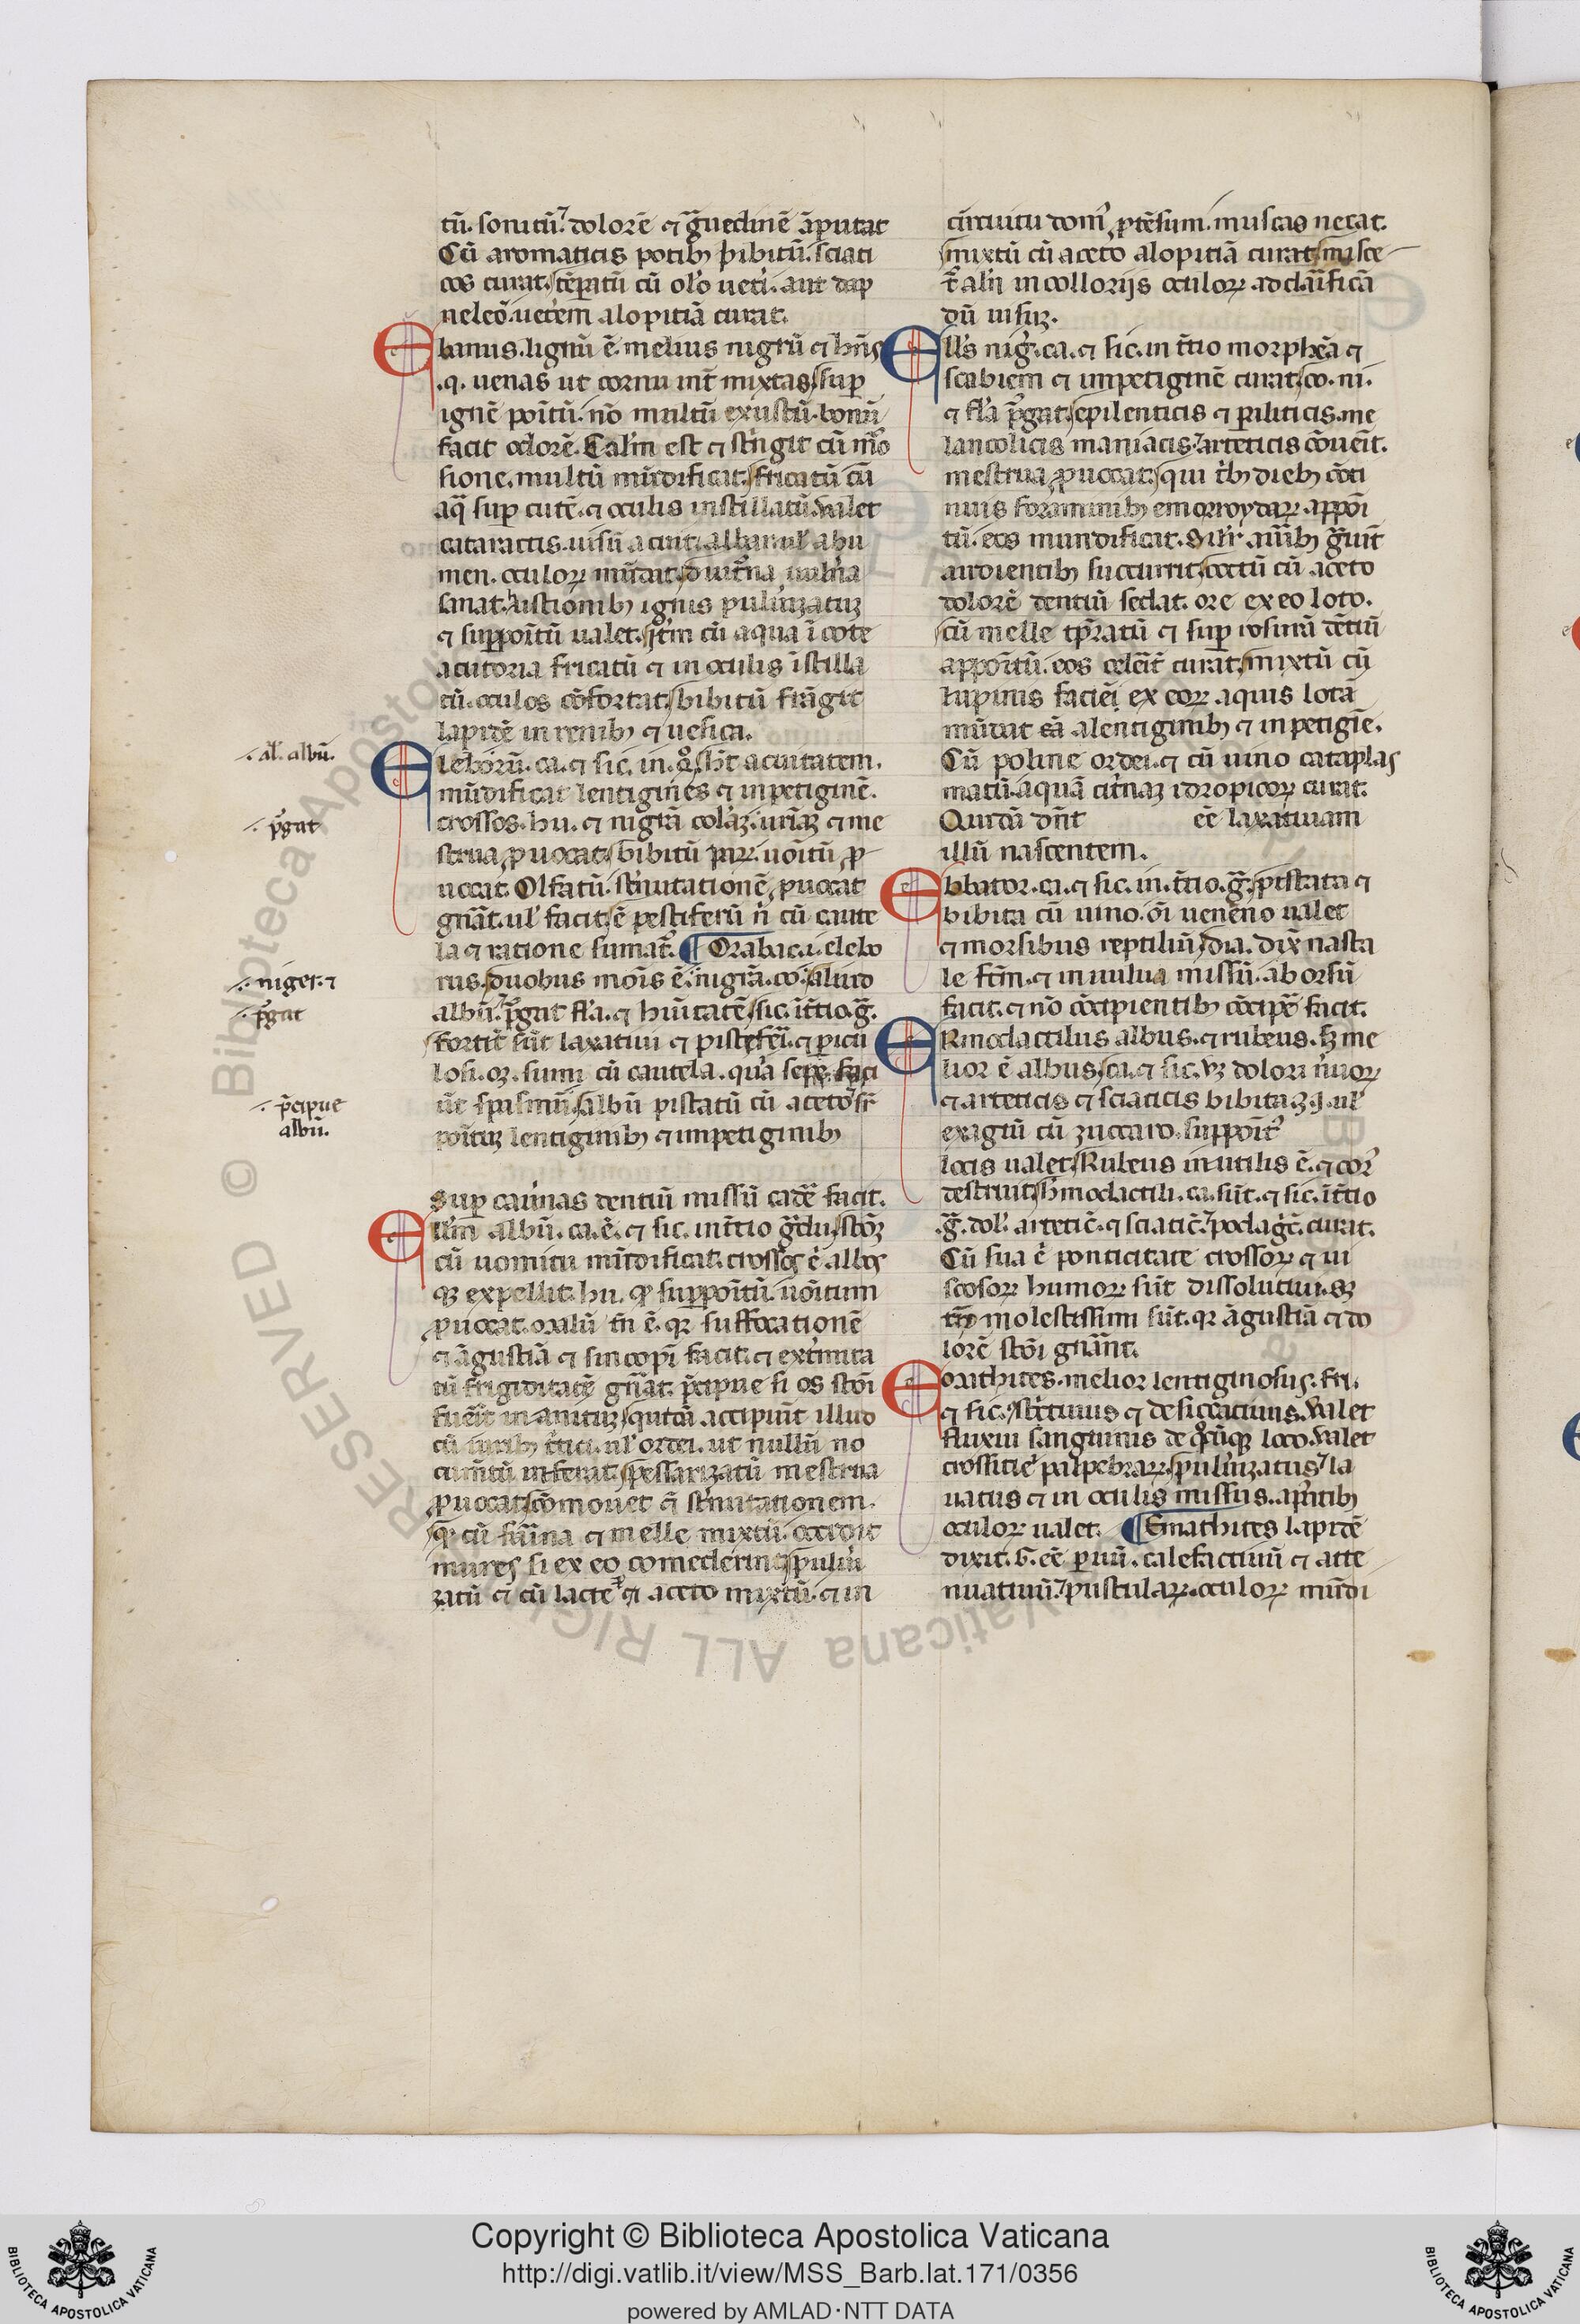 tū. sonitū ⁊ dolorē ⁊ g̃uedinē āputat
Cū aromaticis potibꝫ bibitū. sciati
cos curat. tēꝑatū cū olo ueti. aut dap
neleo. uetem alopitiā curat.
Ebanus. lignū ē. melius nigrū ⁊ hn̄s
.q. uenas ut cornu int̄ mixtas. suꝑ
ignē poītū. nō multū exustū. bonū
facit odorē. Calm̄ est ⁊ st̄ngit cū mo
sione. multū mūdificat. fricatū cū
aq̄ suꝑ cutē. ⁊ oculis instillatū. ualet
cataractis. uisū acuit. albam ul' albu
men. oculoꝝ mūdat. diut̄na uuln̄a
sanat. ustionibꝫ ignis puluīzatuꝫ
⁊ suppoītū ualet. it̄m cū aqua ī cote
acutoria fricatū ⁊ in oculis īstilla
tū. oculos cōfortat. bibitū frāgit
lapidē in renibꝫ ⁊ uesica.
Eleborū. ca. ⁊ sic. in. q̊. hꝫ acuitatem.
mūdificat lentigines ⁊ inpetiginē.
crossos. hu. ⁊ nigrā colaꝫ. uriāꝫ ⁊ me
strua ꝓuocat. bibitū puꝝ. uoitū ꝓ
uocat. Olfatū. st̄nutationē ꝓuocat
gnāt. ul' facit. ē pestiferū n̄ cū caute
la ⁊ ratione sumat̄. ¶ Orabac. i. elebo
rus. duobus mōis ē. nigrā. co. aliud
albū. ⁊ p̄gat fl'a. ⁊ hūitatē. sic. īt̄tio. g̃.
fortit̄ sūt laxatiui ⁊ pistefeī. ⁊ ꝑicu
losi. oꝫ. sumi cū cautela. q̄a sepe faci
ūt spasmū. albū pistatū cū aceto. sr̄
poītuꝫ lentiginibꝫ ⁊ impetiginibꝫ
Suꝑ cau̇nas dentiū missū cadē facit.
Ellm̄ albū. ca. ē. ⁊ sic. int̄tio g̃du. stōꝫ
cū uomitu mūdificat. crossos ē albos
qꝫ expellit. hu. qꝫ suppoītū. uōitum
ꝓuocat. malū tn̄ ē. qꝛ suffocationē
⁊ āgustiā ⁊ sincopī facit. ⁊ extmita
tū frigiditatē gnāt. p̄cipue si os stōi
fueīt inanituꝫ. quidā accipiūt illud
cū iuribꝫ t̄tici. ul' ordei. ut nullū no
cumtū inferat. pessarizatū mestrua
ꝓuocat. cōmouet ē st̄nutationem.
qꝫ cū farina ⁊ melle mixtū. occidit
mures si ex eo comederint. puluī
zatū ⁊ cū lacte ⁊ aceto mixtū. ⁊ in
∴ al' albū.
∴ p̄gat
∴ niger. ⁊
∴ p̄gat
∴ p̄cipue
albū.
circuitu dom' ꝓtēsum. muscas necat.
mixtū cū aceto alopitiā curat. misce
t̄ alii in collorijs oculoꝝ ad claīficā
dū uisuꝫ.
Ell's nig̊. ca. ⁊ sic. in t̄tio morpheā ⁊
scabiem ⁊ impetiginē curat. co. ni.
⁊ fl'a p̄gat. epilenticis ⁊ ꝑiliticis. me
lancolicis maniacis. ⁊ arteticis cōueit.
mestrua ꝓuocat. qui t̄bꝫ diebꝫ cōti
nuis foraminibꝫ emorroydaꝝ appoi
tū. eos mundificat. Sil'r auribꝫ g̃uit̄
audientibꝫ succurrit. coctū cū aceto
dolorē dentiū sedat. ore ex eo loto.
cū melle tꝑatū ⁊ suꝑ cosurā dētiū
appoītū. eos celeit̄ curat. mixtū cū
lupinis facieī ex eoꝝ aquis lota
mūdat eā a lentiginibꝫ ⁊ inpetigiē.
Cū poline ordei. ⁊ cū uino cataplas
matū. aquā cit̄naꝫ idropicoꝝ curat.
Quidā dn̄t eē laxatiuam
illū nascentem.
Ebbator. ca. ⁊ sic. in. t̄tio. g̃. pistata ⁊
bibita cū uino. oī ueneno ualet
⁊ morsibus reptiliū. dia. dix̄ nasta
le ftm̄. ⁊ in uulua missū. aborsū
facit. ⁊ nō cōcipientibꝫ cōcipe facit.
ERmodactilus albus. ⁊ rubeus. sꝫ me
lior ē albus. ca. ⁊ sic. uꝫ dolori n̄uoꝝ
⁊ arteticis ⁊ sciaticis bibita ʒ. j. ul'
exagiū cū zuccaro. suppoīt'
locis ualet. Rubeus inutilis ē. ⁊ cor'
destruit. h̄modactili. ca. sūt. ⁊ sic. īt̄tio
.g̃. dol'. artetic̄. ⁊ sciatic̄. ⁊ podag̊c̄. curat.
Cū sua ē ponticitate crossoꝝ ⁊ ui
scosoꝝ humoꝝ sūt dissolutiui. sꝫ
tn̄ molestissimi sūt. qꝛ āgustiā ⁊ do
lorē stōi gnāt.
Eorathites. melior lentiginosus. fri.
⁊ sic. st̄ctiuus ⁊ desiccatiuus. Valet
fluxui sanguinis de q̊cūqꝫ loco. Valet
crossitiei palpebraꝝ. puluīzatus ⁊ la
uatus ⁊ in oculis missus. ap̄titibꝫ
oculoꝝ ualet. ¶ Emathites lapidē
dixit. G. eē ꝑuū. calefactiuū ⁊ atte
nuatiuū. ⁊ pustulaꝝ. oculoꝝ mūdi
Copyright © Biblioteca Apostolica Vaticana
http://digi.vatlib.it/view/MSS_Barb.lat.171/0356
powered by AMLAD·NTT DATA